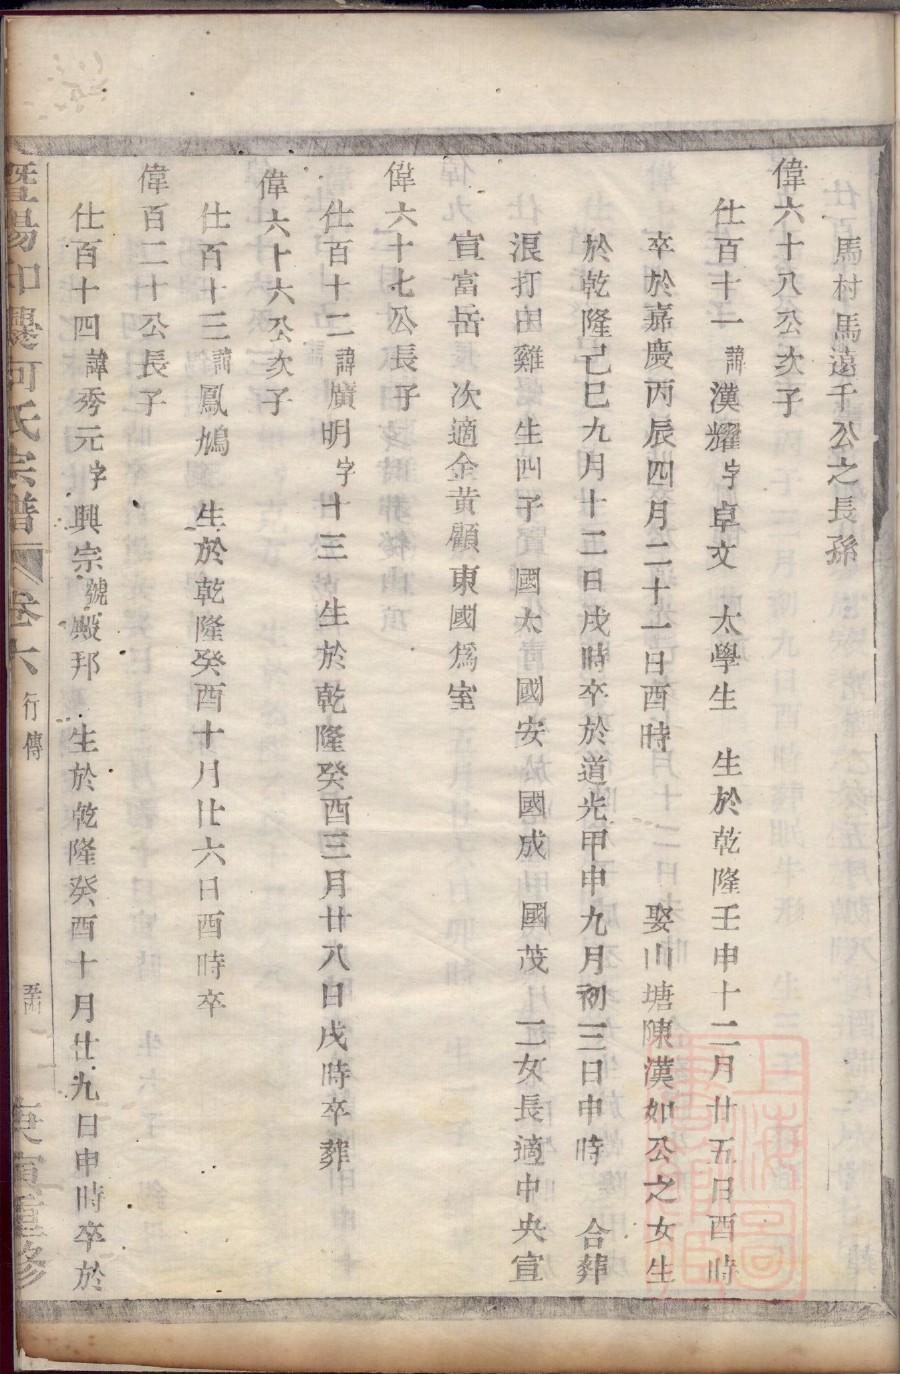 馬村馬遠千公之長孫
偉六十八公次子
仕百十一諱漢耀字卓文　太學生　生於乾隆壬申十二月廿五日酉時
卒於嘉慶丙辰四月二十一日酉時　娶山塘陳漢如公之女生
於乾隆己巳九月十二日戌時卒於道光甲申九月初三日申時　合葬
浪打田雞生四子國太國安國成國茂二女長適中央宣
宣富岳　次適金黃顧東國爲室
偉六十七公長子
仕百十二諱廣明字十三　生於乾隆癸酉三月廿八日戌時卒葬
偉六十六公次子
仕百十三諱鳳鳩　生於乾隆癸酉十月廿六日酉時卒
偉百二十公長子
仕百十四諱秀元字興宗號殿邦　生於乾隆癸酉十月廿九日申時卒於
暨陽 何氏宗譜　卷六　行傳　庚寅重修